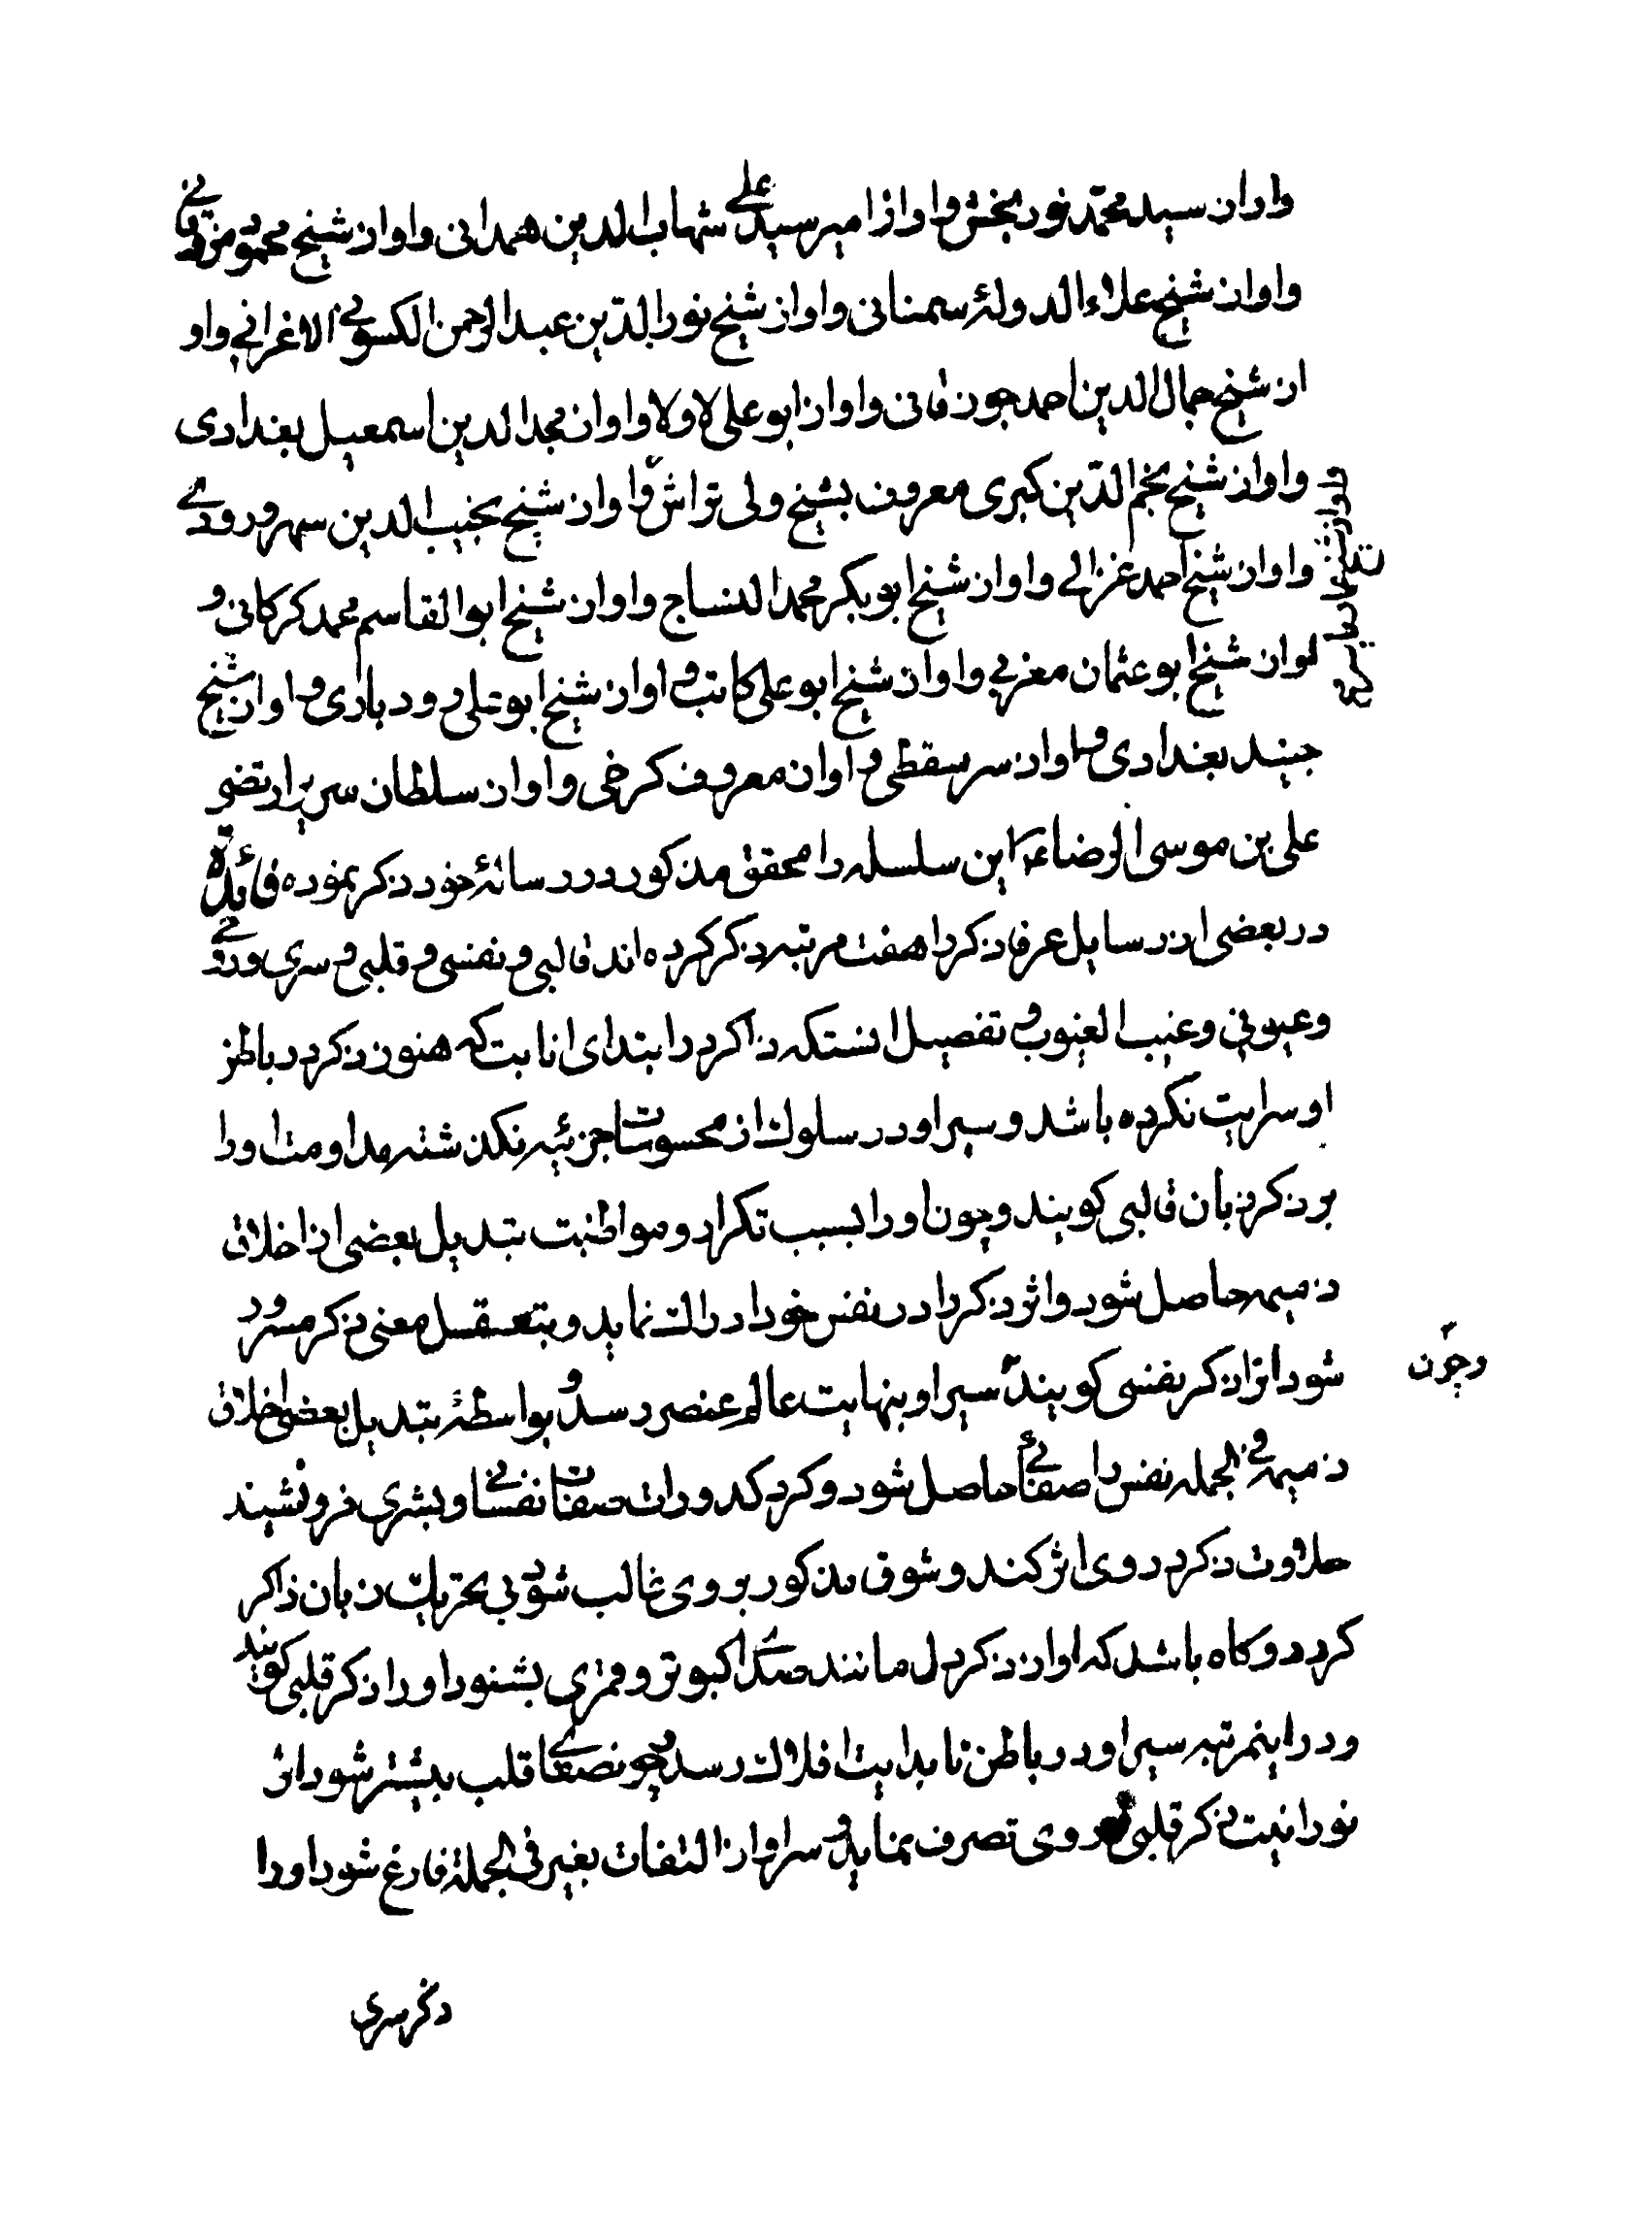 واو از سید محمّد نوربخش و او از امیر سید علی شهاب الدین همدانی و او از شیخ محمود مزدقانی
و او از شیخ علاء الدولهٔ سمنانی و او از شیخ نور الدّین عبد الرحمن الکسوی الاغرانی و او
از شیخ جمال الدین احمد جوزقانی و او از ابو علی لاولا و او از مجد الدین اسمعیل بغدادی
و او از شیخ نجم الدّین کبری معروف بشیخ ولی تراش و او از شیخ نجیب الدین سهروردی
و او از شیخ احمد غزالی و او از شیخ ابو بکر محمد النساج و او از شیخ ابو القاسم محمد کرکانی و
او از شیخ ابو عثمان مغربی و او از شیخ ابو علی کاتب و او از شیخ ابو علی رودباری و او از شیخ
جنید بغدادی و او از سر سقطی و او از معروف کرخی و او از سلطان سریر ارتضی
علی بن موسی الرضا ع که این سلسله را محقق مذکور در رسالهٔ خود ذکر نموده فائدة
در بعضی از رسایل عرفا ذکر را هفت مرتبه ذکر کرده اند قالبی و نفسی و قلبی و سری و روحی
و عیوبی و غیب الغیوب و تفصیل انستکه ذاکر در ابتدای انابت که هنوز ذکر در باطن
او سرایت نکرده باشد و سیر او در سلوک از محسوسات جزئیه نکذشته مداومت او را
بر ذکر زبان قالبی کویند و چون او را بسبب تکرار و مواظبت تبدیل بعضی از اخلاق
ذمیمه حاصل شود و اثر ذکر را در نفس خود ادراک نماید و بتعقل معنی ذکر مسرور
شود انرا ذکر نفسی کویند سیر او بنهایت عالم عنصر رسد و بواسطهٔ تبدیل بعضی اخلاق
وچون
ذمیمه فی الجمله نفس را صفائی حاصل شود و کرد کدورات صفات نفسانی و بشری فرونشیند
حلاوت ذکر در وی اثر کند و شوق مذکور بر وی غالب شود بی تحریک زبان ذاکر
کردد و کاه باشد که اواز ذکر دل مانند صدای کبوتر و قمری بشنود او را ذکر قلبی کویند
و در اینمرتبه سیر او در باطن تا بدایت افلاک رسد و چون صفای قلب بیشتر شود اثر
نورانیت ذکر قلبی در وی تصرف نماید و سر او از التفات بغیر فی الجملة فارغ شود او را
ذکر سری